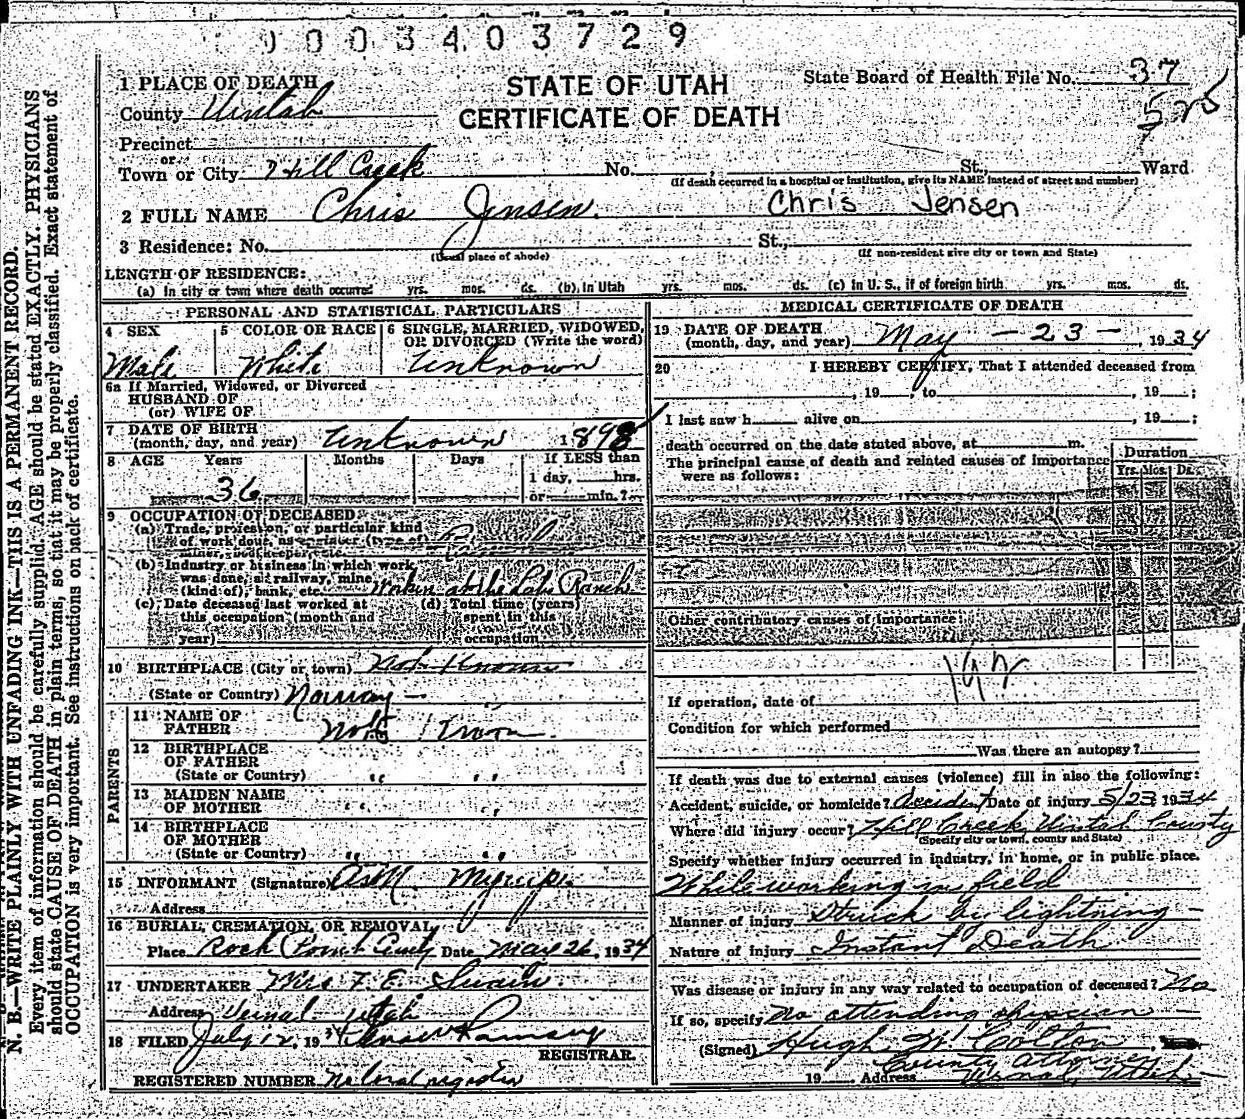 0003403729
1 PLACE OF DEATH
STATE OF UTAH
CERTIFICATE OF DEATH
State Board of Health File No. 37
575
County Uintah
Precinct
or
Town or City Hill Creek No. , St., Ward
(If death occurred in a hospital or institution, give its NAME instead of street and number)
2 FULL NAME Chris Jensen. Chris Jensen
3 Residence: No. St.,
(Usual place of abode) (If non-resident give city or town and State)
LENGTH OF RESIDENCE:
(a) In city or town where death occurred yrs. mos. ds. (b) In Utah yrs. mos. ds. (c) in U. S., if of foreign birth yrs. mos. ds.
PERSONAL AND STATISTICAL PARTICULARS
4 SEX 5 COLOR OR RACE 6 SINGLE, MARRIED, WIDOWED, OR DIVORCED (Write the word)
Male White Unknown
6a If Married, Widowed, or Divorced
HUSBAND OF
(or) WIFE OF
7 DATE OF BIRTH
(month, day, and year) Unknown 1898
8 AGE Years Months Days If LESS than
36 1 day, hrs.
or min.?
9 OCCUPATION OF DECEASED:
(a) Trade, profession, or particular kind
of work done, as
(b) Industry or business in which work
was done, as railway, mine,
(kind of), bank, etc. Workin at the Ranch
(c) Date deceased last worked at (d) Total time (years)
this occupation (month and spent in this
year) occupation
10 BIRTHPLACE (City or town) Not Known
(State or Country) Norway
PARENTS
11 NAME OF
FATHER Not Known
12 BIRTHPLACE
OF FATHER
(State or Country) " "
13 MAIDEN NAME
OF MOTHER " "
14 BIRTHPLACE
OF MOTHER
(State or Country) " "
15 INFORMANT (Signature)
Address
16 BURIAL, CREMATION, OR REMOVAL,
Place Rock Date May 26, 1934
17 UNDERTAKER Mrs F. E. Swain
Address Vernal Utah
18 FILED July 12, 1934 Ramsay
REGISTRAR.
REGISTERED NUMBER No local register
MEDICAL CERTIFICATE OF DEATH
19 DATE OF DEATH
(month, day, and year) May - 23 - , 1934
20 I HEREBY CERTIFY, That I attended deceased from
, 19 , to , 19 ;
I last saw h alive on , 19 ;
death occurred on the date stated above, at m.
The principal cause of death and related causes of importance
were as follows:
Duration
Yrs. Mos. Ds.
Other contributory causes of importance:
If operation, date of
Condition for which performed
Was there an autopsy?
If death was due to external causes (violence) fill in also the following:
Accident, suicide, or homicide? Accident Date of injury 5/23 1934
Where did injury occur? Hill Creek, Uintah County
(Specify city or town, county and State)
Specify whether injury occurred in industry, in home, or in public place.
While working in field
Manner of injury Struck by lightning -
Nature of injury Instant Death
Was disease or injury in any way related to occupation of deceased? No
If so, specify No attending physician -
(Signed) Hugh W. Colton
County Attorney
19 Address Vernal, Utah
N. B.—WRITE PLAINLY WITH UNFADING INK—THIS IS A PERMANENT RECORD.
Every item of information should be carefully supplied. AGE should be stated EXACTLY. PHYSICIANS
should state CAUSE OF DEATH in plain terms, so that it may be properly classified. Exact statement of
OCCUPATION is very important. See instructions on back of certificate.